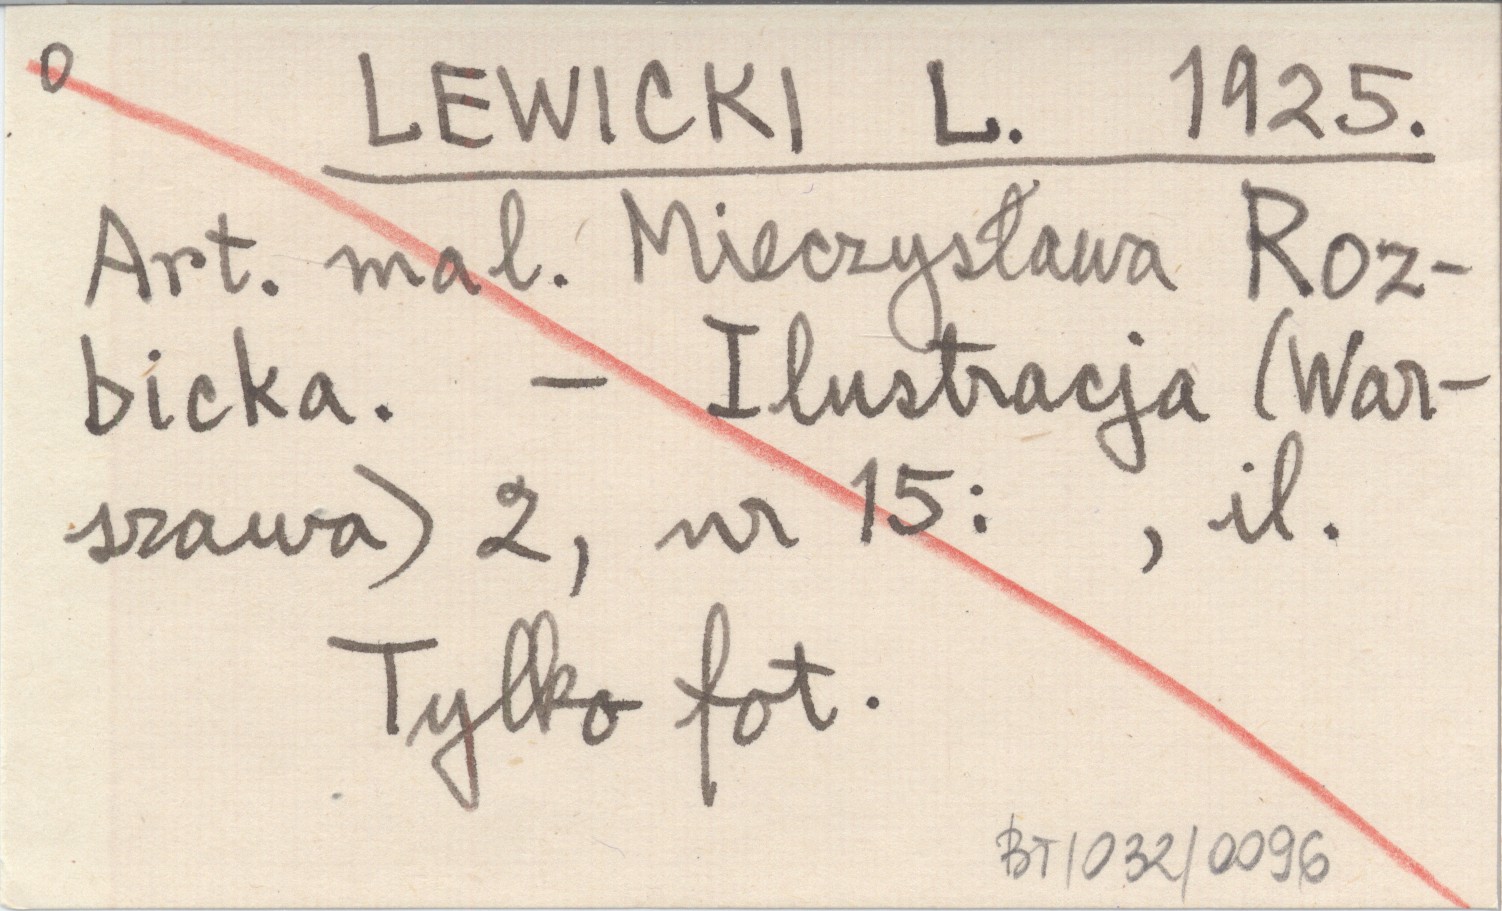 0
LEWICKI L. 1925.
Art. mal. Mieczysława Roz-
bicka. – Ilustracja (War-
szawa) 2, nr 15: , il.
Tylko fot.
BT/032/0096